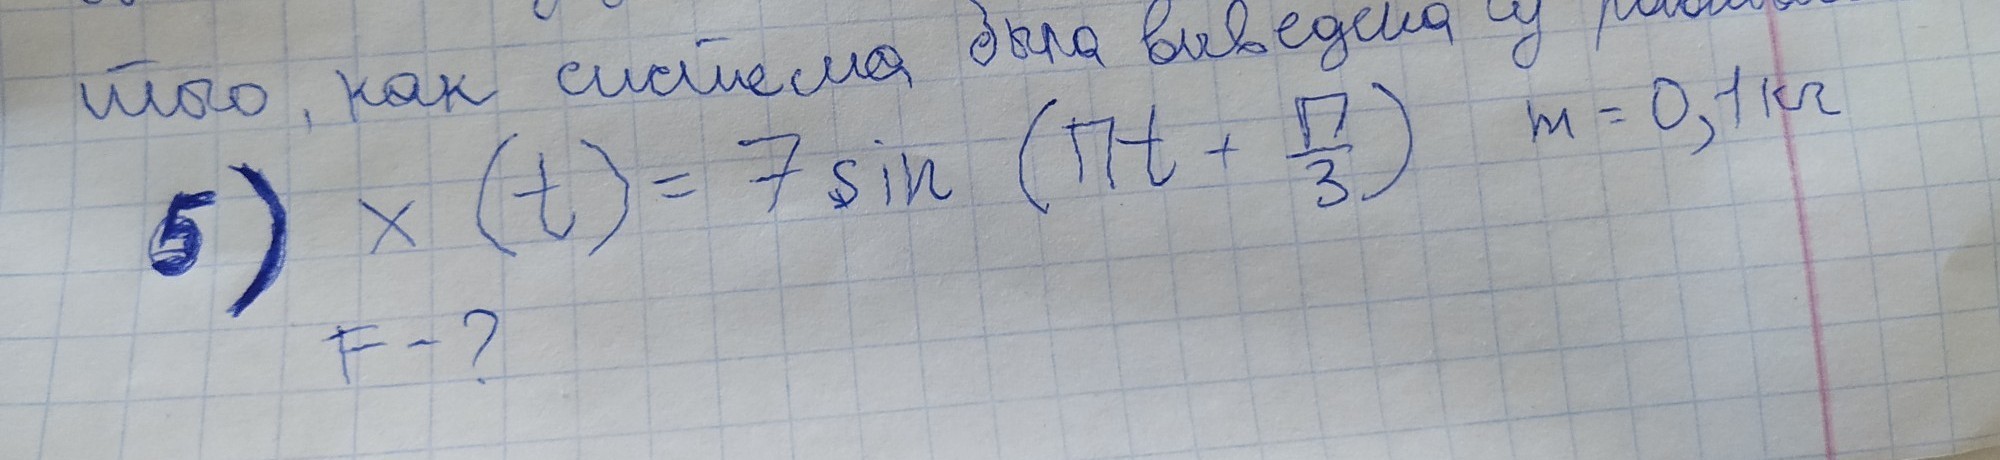 того, как система была выведена из
5) x (t) = 7 sin (Пt + П/3) m = 0,1 кг
F - ?